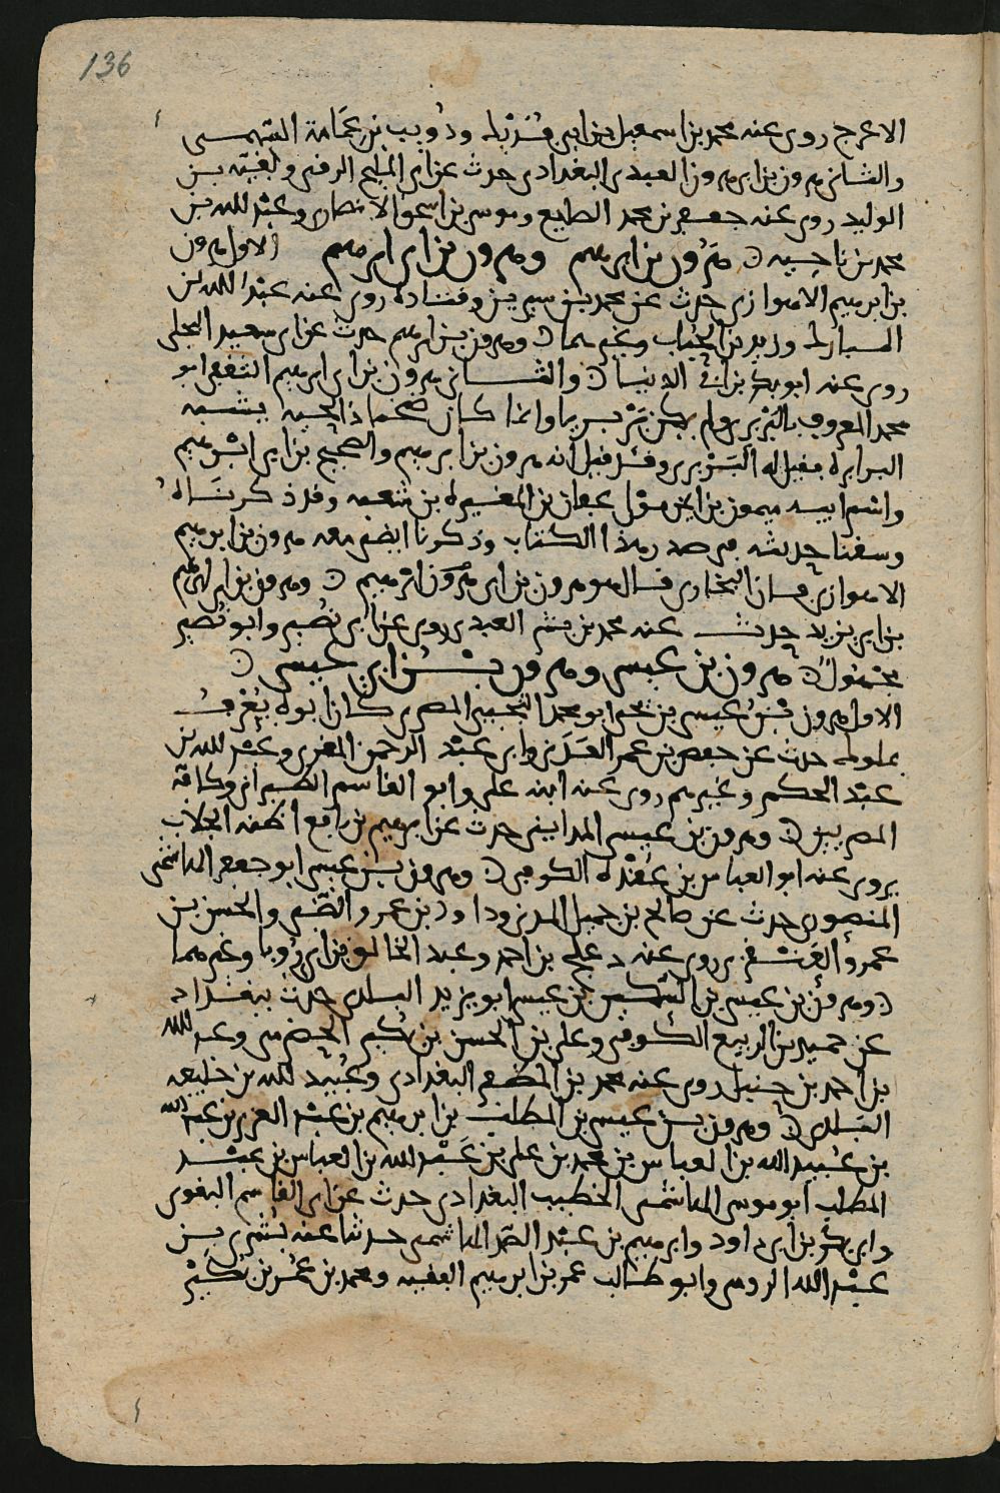 136
الاعرج روى عنه محمد بن اسمعيل بن ابي فديك وذويب بن عمامة السهمي
والثاني هرون بن ابي هرون العبدي البغدادي حدث عن ابي المليح الرقي وبقية بن
الوليد روى عنه جعفر بن محمد الصايغ وموسى بن اسحق الانصاري وعبد الله بن
محمد بن ناجيه هرون بن ابرهيم وهرون بن ابي ابرهيم الاول هرون
بن ابرهيم الاهوازي حدث عن محمد بن سيرين وقتادة روى عنه عبد الله بن
المبارك وزيد بن الحباب وغيرهما وهرون بن ابرهيم حدث عن ابي سعيد البجلي
روى عنه ابو بكر بن ابي الدنيا والثاني هرون بن ابي ابرهيم الثقفي ابو
محمد المعروف بالبربري ولم يكن بربريا وانما كان ضخما ذا لحية يشبه
البرابرة فقيل له البربري وقد قيل انه هرون بن ابرهيم والصحيح بن ابي ابرهيم
واسم ابيه ميمون بن ايمن مولى عفان بن المغيره بن شعبه وقد ذكرناه
وسقنا حديثه في صدر هذا الكتاب وذكرنا ايضا معه هرون بن ابرهيم
الاهوازي وهرون بن ابي ابرهيم
حدث عنه محمد بن بشر العبدي روى عن ابي نصير وابو نصير
مجهول هرون بن عيسى وهرون بن ابي عيسى
الاول هرون بن عيسى بن يحيى ابو محمد التجيبي المصري كان ابوه يعرف
بملوله حدث عن حفص بن عمر العدني وابي عبد الرحمن المقري وعبد الله بن
عبد الحكم وغيرهم روى عنه ابنه علي وابو القاسم الطبراني وكافة
المصريين وهرون بن عيسى المدايني حدث عن ابرهيم بن رافع اظنه الجلاب
يروى عنه ابو العباس بن عقدة الكوفي وهرون بن عيسى ابو جعفر الهاشمي
المنصوري حدث عن صالح بن جميل المدني وداود بن عمرو الضبي والحسن بن
عمرو روى عنه دعلج بن احمد وعبد الخالق بن ابي روبا وغيرهما
وهرون بن عيسى بن السكين بن عيسى ابو يزيد البلدي حدث ببغداد
عن حميد بن الربيع الكوفي وعلي بن الحسن بن بكير الحضرمي وعبد الله
بن احمد بن حنبل روى عنه محمد بن المظفر البغدادي وعبيد الله بن خليفه
البلدي وهرون بن عيسى بن المطلب بن ابرهيم بن عبد العزيز بن عبد الله
بن عبيد الله بن العباس بن محمد بن علي بن عبد الله بن العباس بن عبد
المطلب ابو موسى الهاشمي الخطيب البغدادي حدث عن ابي القاسم البغوي
وابي بكر بن ابي داود وابرهيم بن عبد الصمد الهاشمي حدثنا عنه بشرى بن
عبد الله الرومي وابو طالب عمر بن ابرهيم الفقيه ومحمد بن عمر بن بكير